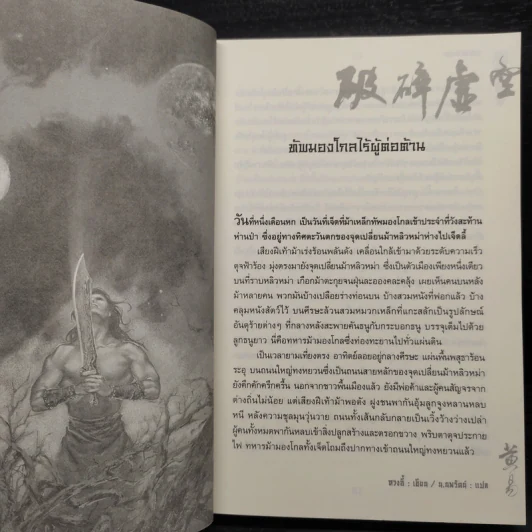 破碎虛空
ทัพมองโกลไร้ผู้ต่อต้าน
วันที่หนึ่งเดือนหก เป็นวันที่เจ็ดที่ม้าเหล็กทัพมองโกลเข้าประจำที่วังสะท้าน
ห่านป่า ซึ่งอยู่ทางทิศตะวันตกของจุดเปลี่ยนม้าหลิวหม่าห่างไปเจ็ดลี้
เสียงฝีเท้าม้าเร่งร้อนพลันดัง เคลื่อนใกล้เข้ามาด้วยระดับความเร็ว
ดุจฟ้าร้อง มุ่งตรงมายังจุดเปลี่ยนม้าหลิวหม่า ซึ่งเป็นตัวเมืองเพียงหนึ่งเดียว
บนที่ราบหลิวหม่า เกือกม้าตะกุยจนฝุ่นละอองคละคลุ้ง เผยเห็นคนบนหลัง
ม้าหลายคน พวกมันบ้างเปลือยร่างท่อนบน บ้างสวมหนังที่ฟอกแล้ว บ้าง
คลุมหนังสัตว์ไว้ บนศีรษะล้วนสวมหมวกเหล็กที่แกะสลักเป็นรูปลักษณ์
อันดุร้ายต่างๆ ที่กลางหลังสะพายคันธนูกับกระบอกธนู บรรจุเต็มไปด้วย
ลูกธนูยาว นี่คือทหารม้ามองโกลซึ่งท่องทะยานไปทั่วแผ่นดิน
เป็นเวลายามเที่ยงตรง อาทิตย์ลอยอยู่กลางศีรษะ แผ่นพื้นพสุธาร้อน
ระอุ บนถนนใหญ่ทงหยวนซึ่งเป็นถนนสายหลักของจุดเปลี่ยนม้าหลิวหม่า
ยังคึกคักครึกครื้น นอกจากชาวพื้นเมืองแล้ว ยังมีพ่อค้าและผู้คนสัญจรจาก
ต่างถิ่นไม่น้อย แต่เสียงฝีเท้าม้าพอดัง ฝูงชนพากันอุ้มลูกจูงหลานหลบ
หนี หลังความชุลมุนวุ่นวาย ถนนทั้งเส้นกลับกลายเป็นเวิ้งว้างว่างเปล่า
ผู้คนทั้งหมดพากันหลบเข้าสิ่งปลูกสร้างและตรอกขวาง พริบตาดุจประกาย
ไฟ ทหารม้ามองโกลทั้งเจ็ดโถมถึงปากทางเข้าถนนใหญ่ทงหยวนแล้ว
หวงอี้ : เขียน / น.นพรัตน์ : แปล
黃易